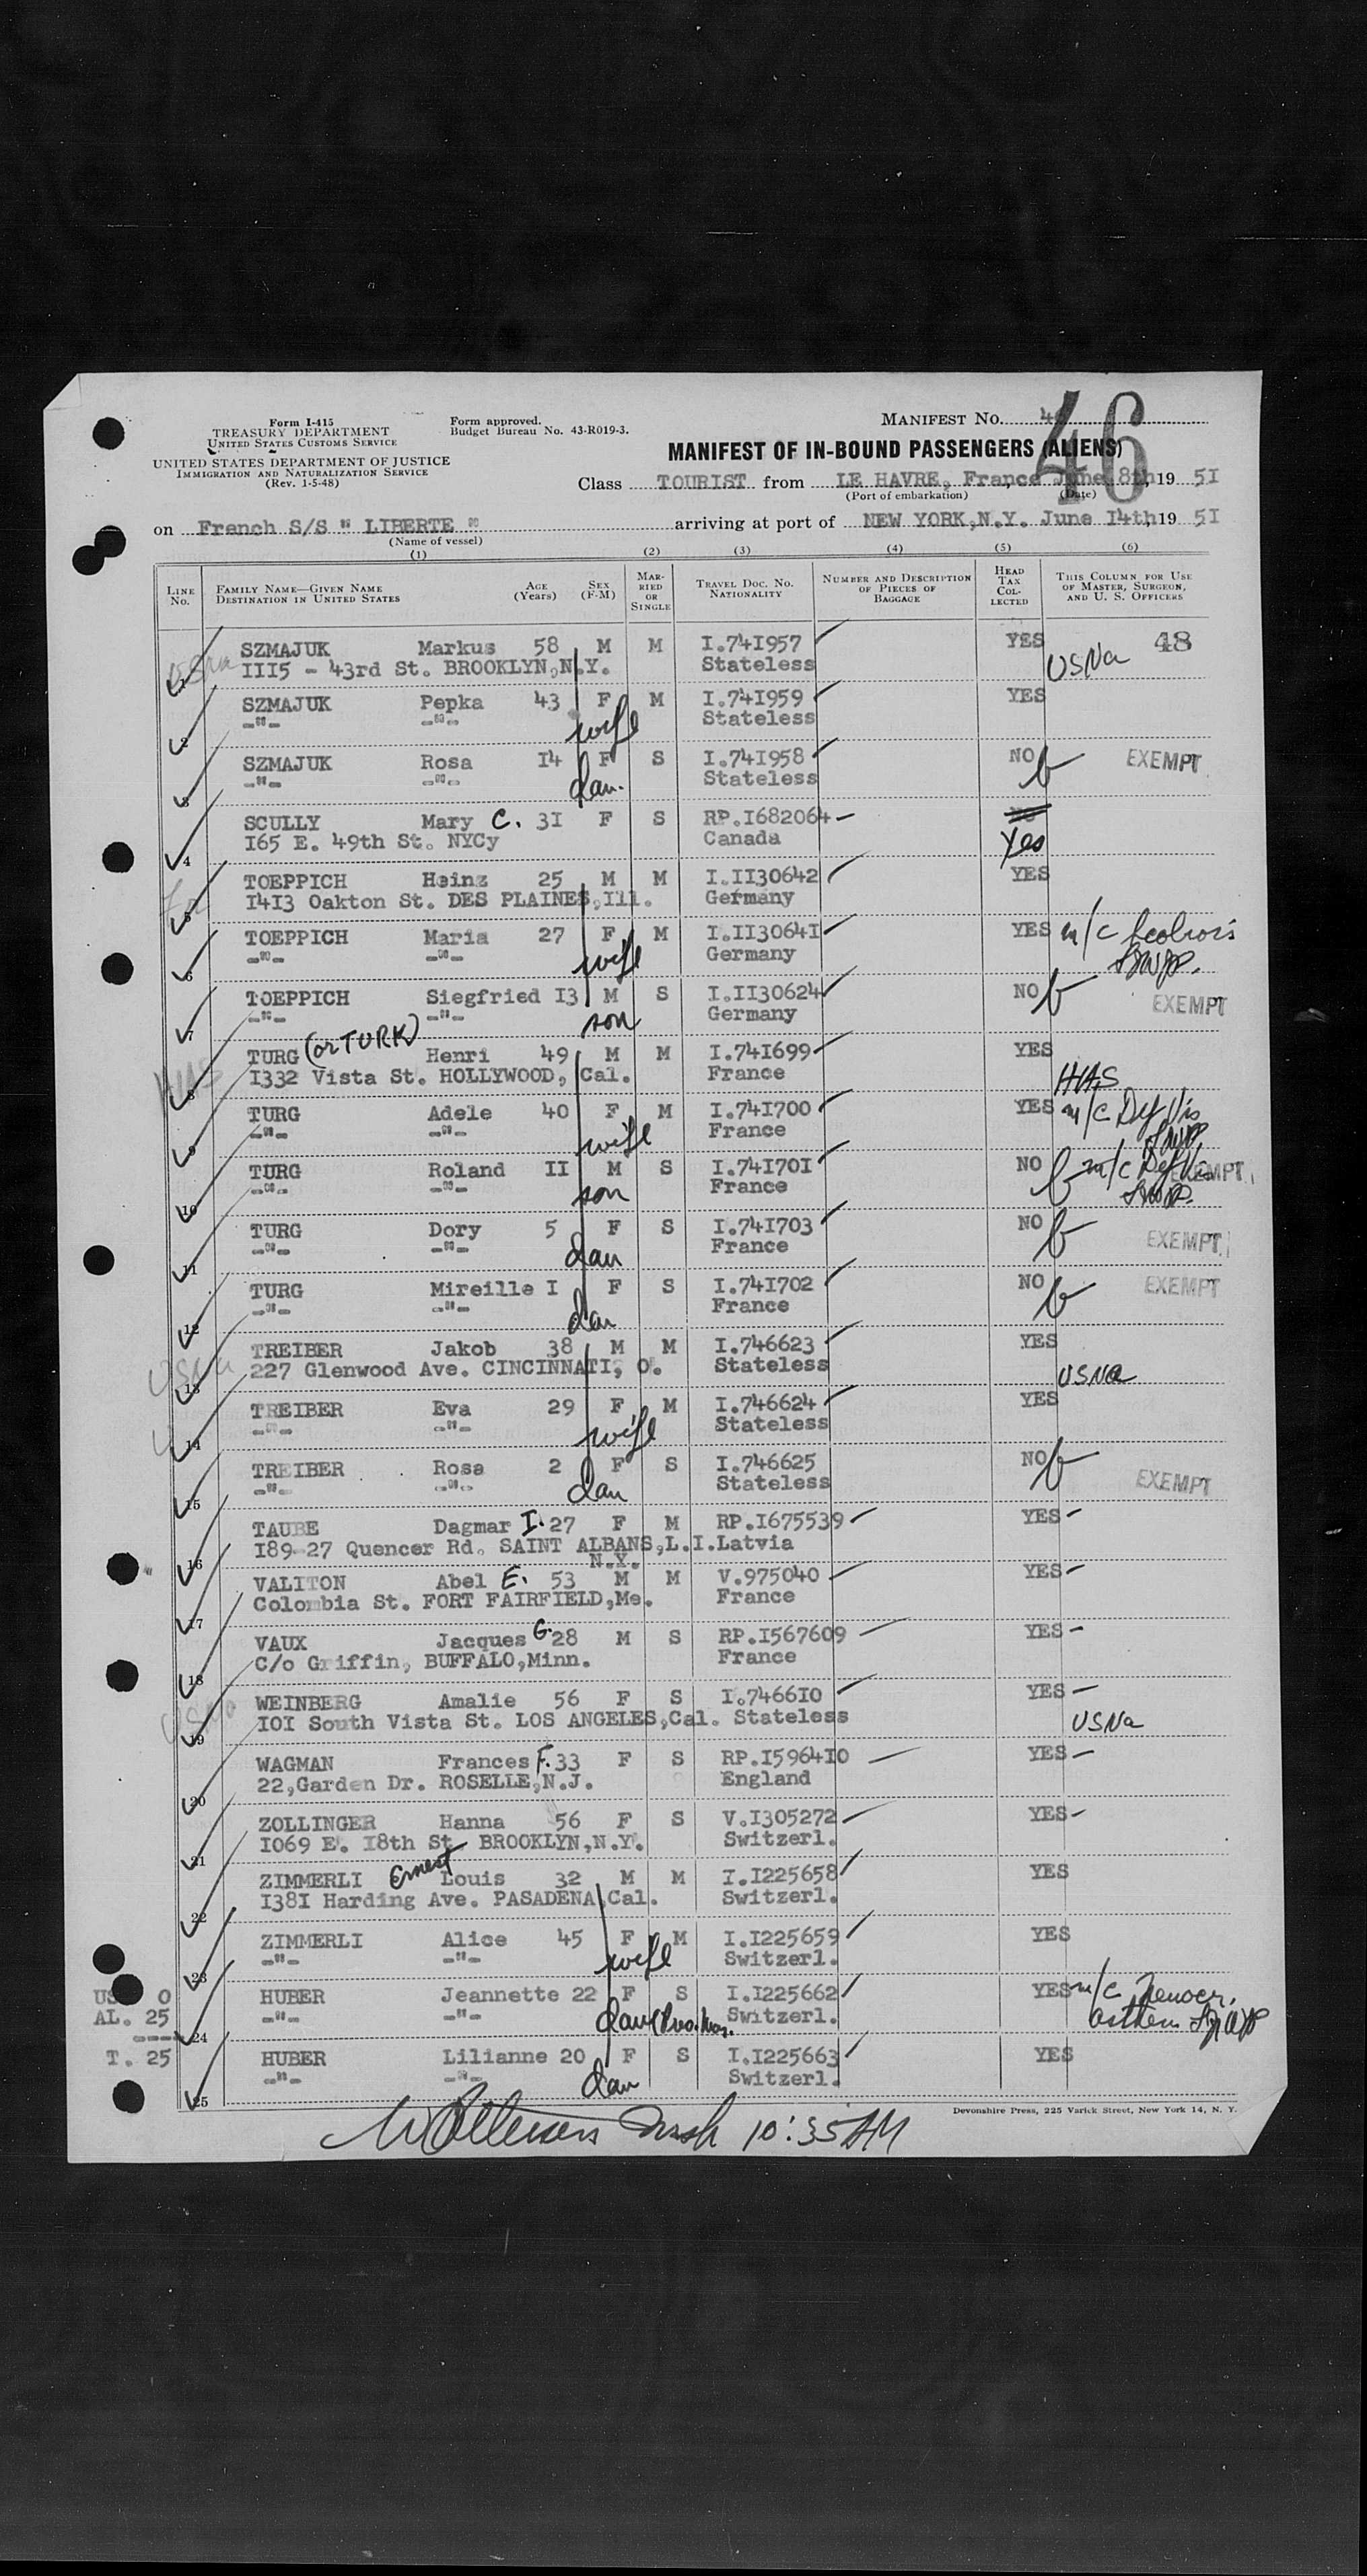 Form I-415
TREASURY DEPARTMENT
UNITED STATES CUSTOMS SERVICE
UNITED STATES DEPARTMENT OF JUSTICE
IMMIGRATION AND NATURALIZATION SERVICE
(Rev. 1-5-48)
Form approved.
Budget Bureau No. 43-R019-3.
MANIFEST NO. 46
46
MANIFEST OF IN-BOUND PASSENGERS (ALIENS)
Class TOURIST from LE HAVRE, France June 8th, 19 5I
(Port of embarkation) (Date)
on French S/S " LIBERTE " arriving at port of NEW YORK,N.Y. June I4th 19 5I
(Name of vessel)
(1) (2) (3) (4) (5) (6)
LINE NO. FAMILY NAME—GIVEN NAME DESTINATION IN UNITED STATES AGE (Years) SEX (F-M) MARRIED OR SINGLE TRAVEL DOC. NO. NATIONALITY NUMBER AND DESCRIPTION OF PIECES OF BAGGAGE HEAD TAX COLLECTED THIS COLUMN FOR USE OF MASTER, SURGEON, AND U. S. OFFICERS
SZMAJUK Markus 58 M M I.74I957 YES 48
1 III5 - 43rd St. BROOKLYN,N.Y. Stateless USNa
SZMAJUK Pepka 43 F M I.74I959 YES
2 -"- -"- wife Stateless
SZMAJUK Rosa I4 F S I.74I958 NO EXEMPT
3 -"- -"- dau. Stateless
SCULLY Mary C. 3I F S RP.I682064 Yes
4 I65 E. 49th St. NYCy Canada
TOEPPICH Heinz 25 M M I.II30642 YES
5 I4I3 Oakton St. DES PLAINES,Ill. Germany
TOEPPICH Maria 27 F M I.II3064I YES m/c
6 -"- -"- wife Germany
TOEPPICH Siegfried I3 M S I.II30624 NO EXEMPT
7 -"- -"- son Germany
TURG (or TURK) Henri 49 M M I.74I699 YES
8 I332 Vista St. HOLLYWOOD, Cal. France HIAS
TURG Adele 40 F M I.74I700 YES m/c Def Vis
9 -"- -"- wife France
TURG Roland II M S I.74I70I NO m/c Def Vis EXEMPT
10 -"- -"- son France
TURG Dory 5 F S I.74I703 NO EXEMPT
11 -"- -"- dau France
TURG Mireille I F S I.74I702 NO EXEMPT
12 -"- -"- dau France
TREIBER Jakob 38 M M I.746623 YES
13 227 Glenwood Ave. CINCINNATI, O. Stateless USNa
TREIBER Eva 29 F M I.746624 YES
14 -"- -"- wife Stateless
TREIBER Rosa 2 F S I.746625 NO EXEMPT
15 -"- -"- dau Stateless
TAUBE Dagmar I. 27 F M RP.I675539 YES
16 I89-27 Quencer Rd. SAINT ALBANS,L.I. Latvia
N.Y.
VALITON Abel E. 53 M M V.975040 YES
17 Colombia St. FORT FAIRFIELD,Me. France
VAUX Jacques G. 28 M S RP.I567609 YES
18 C/o Griffin, BUFFALO,Minn. France
WEINBERG Amalie 56 F S I.7466I0 YES
19 I0I South Vista St. LOS ANGELES,Cal. Stateless USNa
WAGMAN Frances F. 33 F S RP.I5964I0 YES
20 22,Garden Dr. ROSELLE,N.J. England
ZOLLINGER Hanna 56 F S V.I305272 YES
21 I069 E. I8th St. BROOKLYN,N.Y. Switzerl.
ZIMMERLI Ernest Louis 32 M M I.I225658 YES
22 I38I Harding Ave. PASADENA,Cal. Switzerl.
ZIMMERLI Alice 45 F M I.I225659 YES
23 -"- -"- wife Switzerl.
HUBER Jeannette 22 F S I.I225662 YES m/c
24 -"- -"- dau Switzerl.
HUBER Lilianne 20 F S I.I225663 YES
25 -"- -"- dau Switzerl.
US 0
AL. 25
T. 25
10:35 AM
Devonshire Press, 225 Varick Street, New York 14, N. Y.